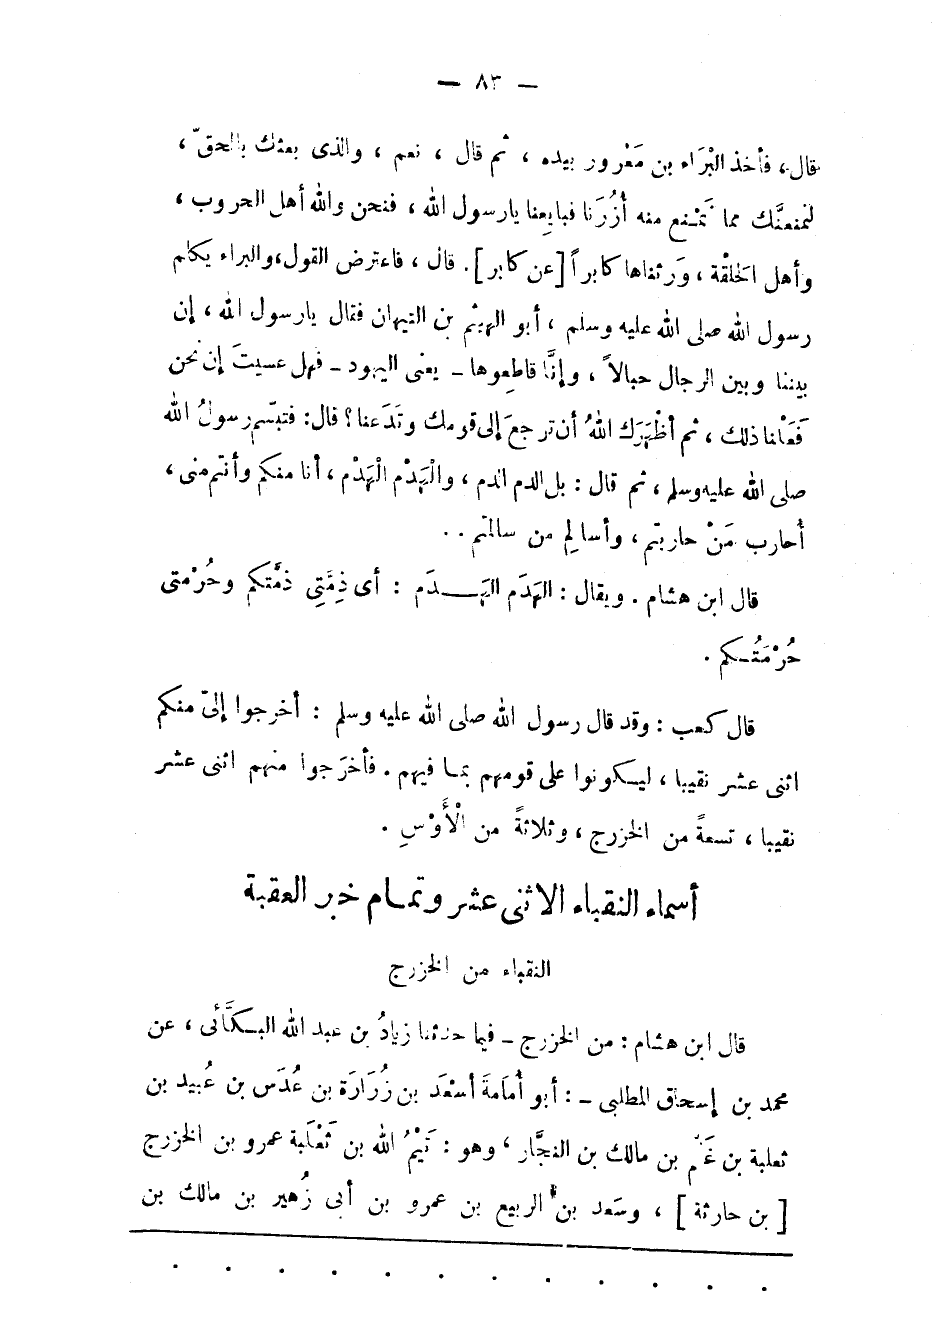 — ٨٣ —
قال، فأخذ البَرَاء بن مَعْرور بيده ، ثم قال ، نعم ، والذى بعثك بالحقّ ،
لنمنعنَّك مما نَمْنع منه أُزُرَنا فبايِعنا يارسول الله ، فنحن والله أهل الحروب ،
وأهل الحَلْقة ، وَرثناها كابراً [عن كابر] . قال ، فاعترض القول،والبراء يكلم
رسول الله صلى الله عليه وسلم ، أبو الهيثم بن التيهان فقال يارسول الله ، إن
بيننا وبين الرجال حبالاً ، وإنَّا قاطِعوها ـ يعنى اليهود ـ فهل عسيتَ إن نحن
فَعَلْنا ذلك ، ثم أظْهَرَك اللهُ أن ترجعَ إلى قومك وتَدَعنا؟ قال: فتبسّم رسولُ الله
صلى الله عليه وسلم ، ثم قال : بل الدم الدم ، والْهَدْم الْهَدْم ، أنا منكم وأنتم منى ،
أُحارب مَنْ حاربتم ، وأسالِم من سالمتم . .
قال ابن هشام . ويقال : الهَدَم الهَـــدَم : أى ذِمَّتِى ذمَّتكم وحُرْمتى
حُرْمَتُـكم .
قال كعب : وقد قال رسول الله صلى الله عليه وسلم : أخرجوا إلىّ منكم
اثنى عشر نقيبا ، ليـكونوا على قومهم بمـا فيهم . فأخرَجوا منهم اثنى عشر
نقيبا ، تسعةً من الخزرج ، وثلاثةً من الْأَوْسِ .
أسماء النقباء الاثنى عشر وتمـام خبر العقبة
النقباء من الخزرج
قال ابن هشام : من الخزرج ـ فيما حدثنا زيادُ بن عبد الله البـكَّائى ، عن
محمد بن إسحاق المطلبى ـ : أبو أُمَامَةَ أسْعَد بن زُرَارَة بن عُدَس بن عُبيد بن
ثعلبة بن غَنْم بن مالك بن النجَّار ، وهو : تَيْمُ الله بن ثَعْلَبة عمرو بن الخزرج
[ بن حارثة ] ، وسَعد بن الربيع بن عمرو بن أبى زُهير بن مالك بن
. . . . . . . . . . . .